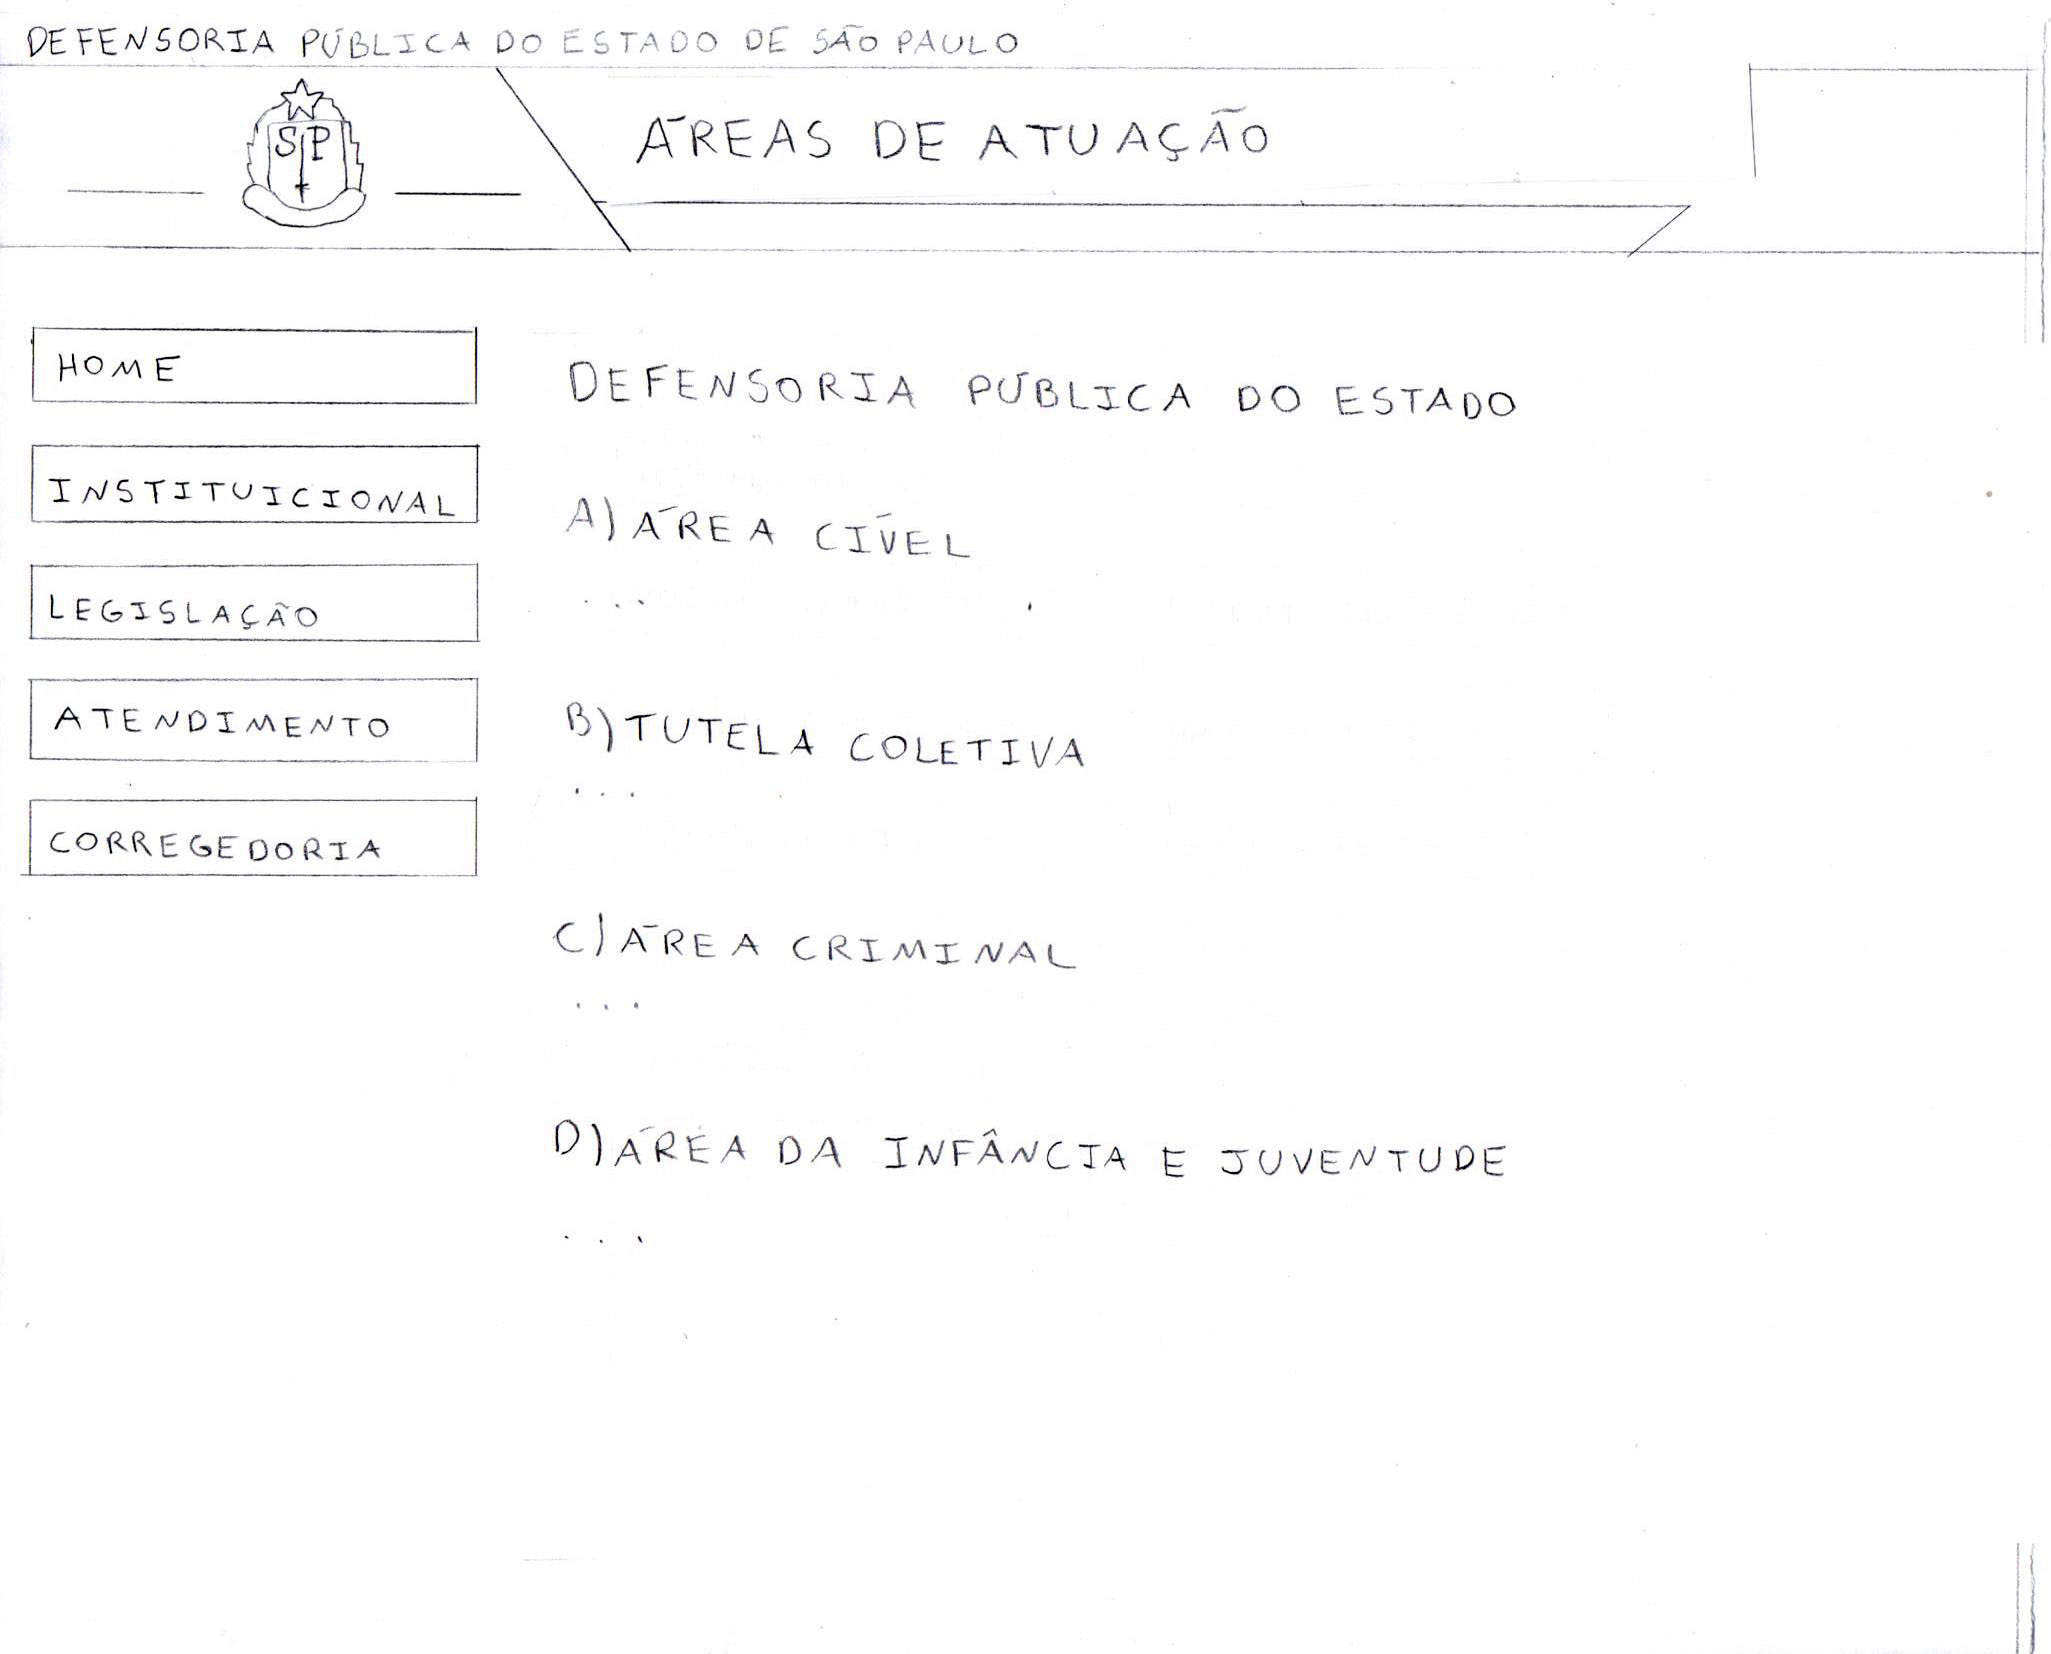 DEFENSORIA PÚBLICA DO ESTADO DE SÃO PAULO
SP
ÁREAS DE ATUAÇÃO
HOME
INSTITUICIONAL
LEGISLAÇÃO
ATENDIMENTO
CORREGEDORIA
DEFENSORIA PÚBLICA DO ESTADO
A) ÁREA CÍVEL
...
B) TUTELA COLETIVA
...
C) ÁREA CRIMINAL
...
D) ÁREA DA INFÂNCIA E JUVENTUDE
...